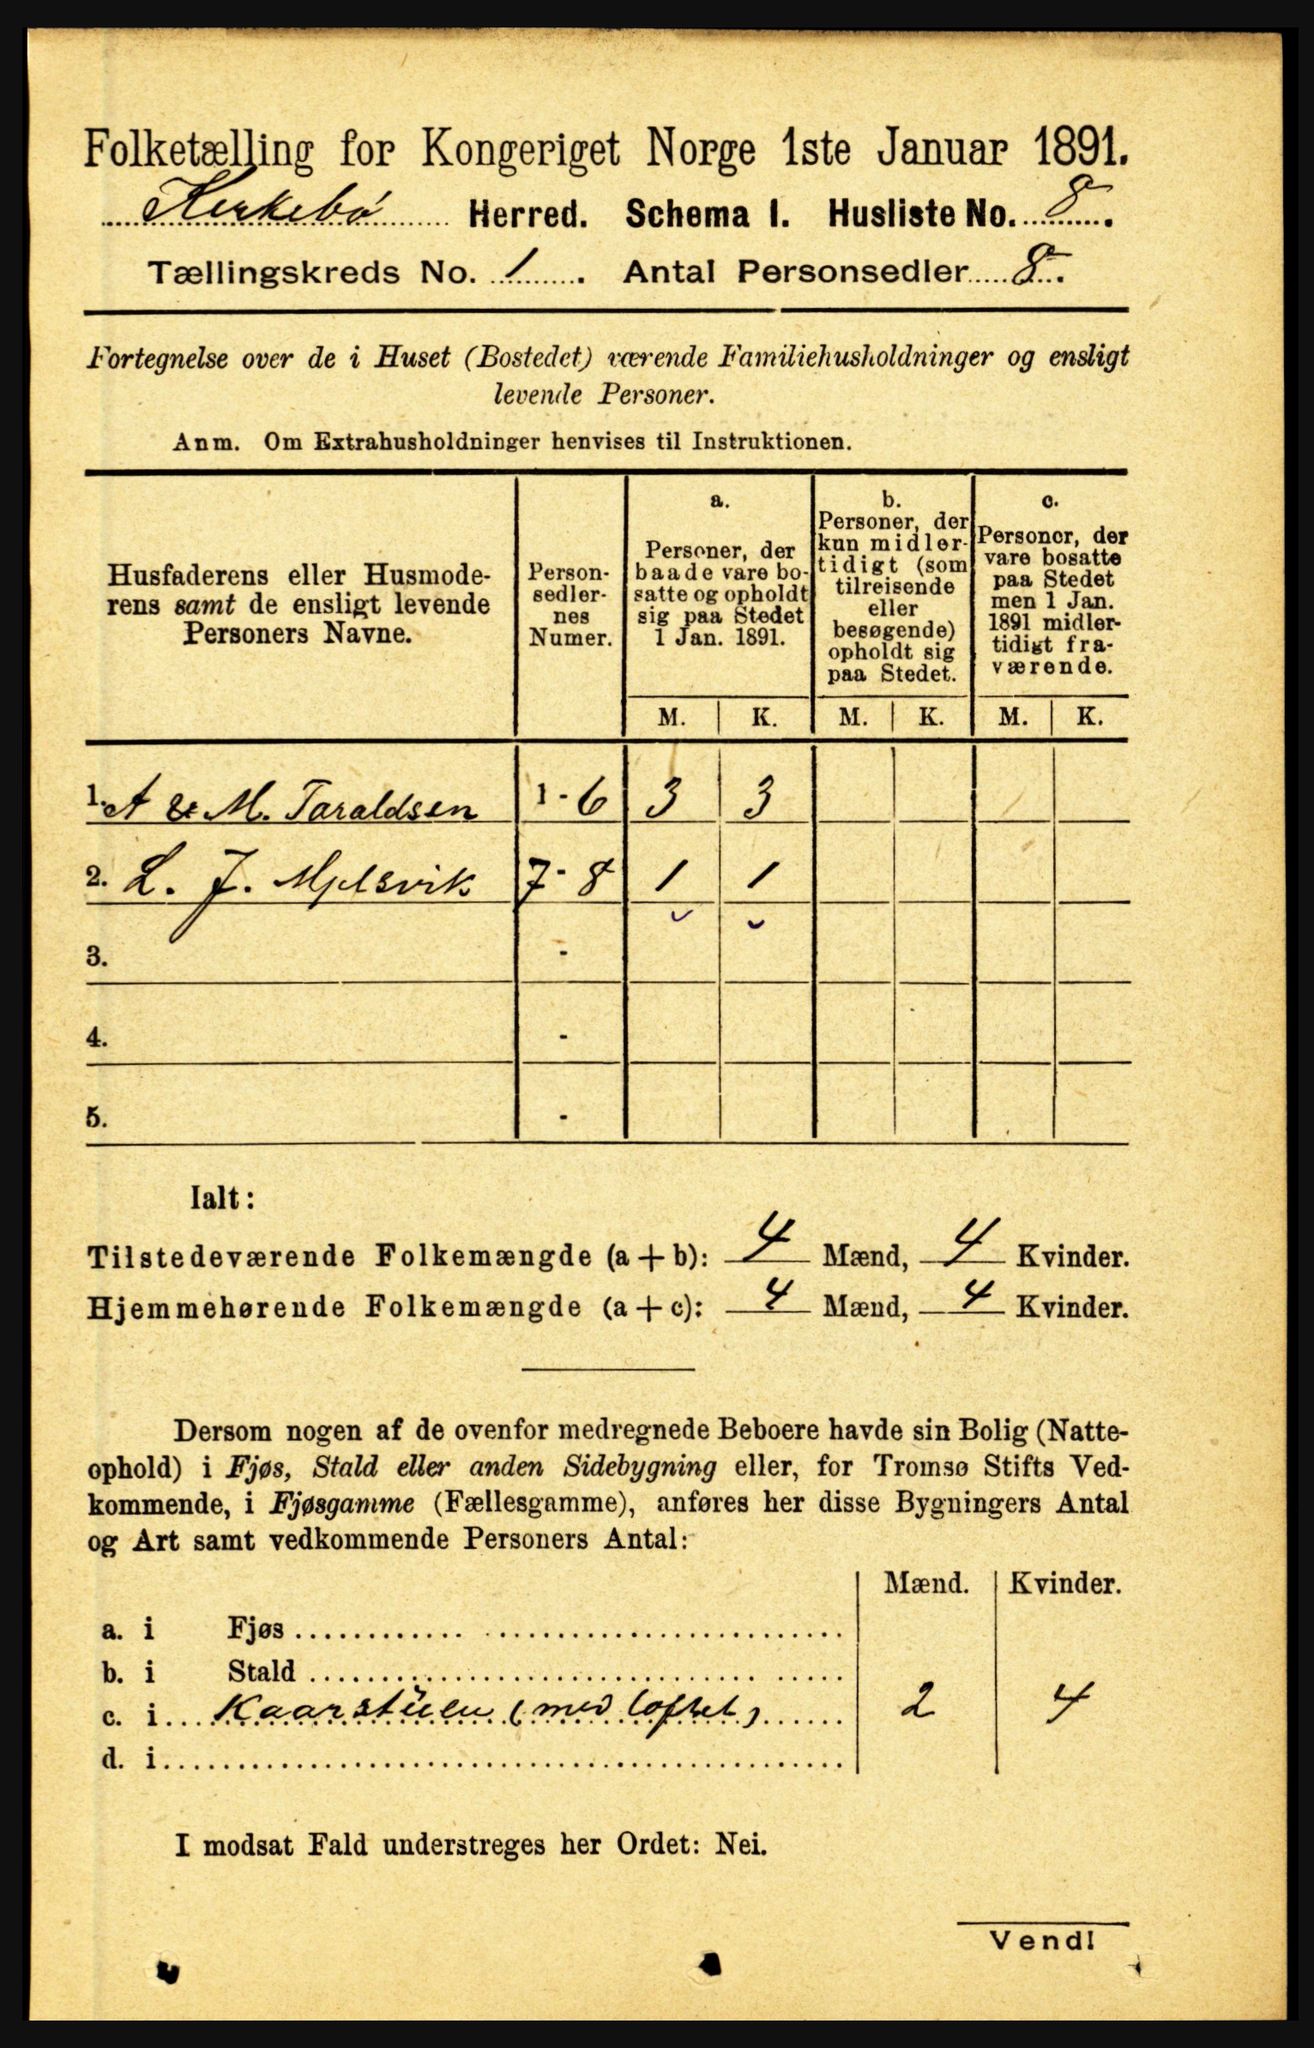 Folketælling for Kongeriget Norge 1ste Januar 1891.
Kirkebø Herred. Schema I. Husliste No. 8.
Tællingskreds No. 1. Antal Personsedler 8.
Fortegnelse over de i Huset (Bostedet) værende Familiehusholdninger og ensligt
levende Personer.
Anm. Om Extrahusholdninger henvises til Instruktionen.
Husfaderens eller Husmode-
rens samt de ensligt levende
Personers Navne.
Person-
sedler-
nes
Numer.
a.
Personer, der
baade vare bo-
satte og opholdt
sig paa Stedet
1 Jan. 1891.
b.
Personer, der
kun midler-
tidigt (som
tilreisende
eller
besøgende)
opholdt sig
paa Stedet.
c.
Personer, der
vare bosatte
paa Stedet
men 1 Jan.
1891 midler-
tidigt fra-
værende.
M. K. M. K. M. K.
1. A & M. Taraldsen 1 - 6 3 3
2. L. J. Mjelsvik 7 - 8 1 1
3. -
4. -
5. -
Ialt:
Tilstedeværende Folkemængde (a + b): 4 Mænd, 4 Kvinder.
Hjemmehørende Folkemængde (a + c): 4 Mænd, 4 Kvinder.
Dersom nogen af de ovenfor medregnede Beboere havde sin Bolig (Natte-
ophold) i Fjøs, Stald eller anden Sidebygning eller, for Tromsø Stifts Ved-
kommende, i Fjøsgamme (Fællesgamme), anføres her disse Bygningers Antal
og Art samt vedkommende Personers Antal:
Mænd. Kvinder.
a. i Fjøs
b. i Stald
c. i Kaarstuen (med loftet) 2 4
d. i
I modsat Fald understreges her Ordet: Nei.
Vend!